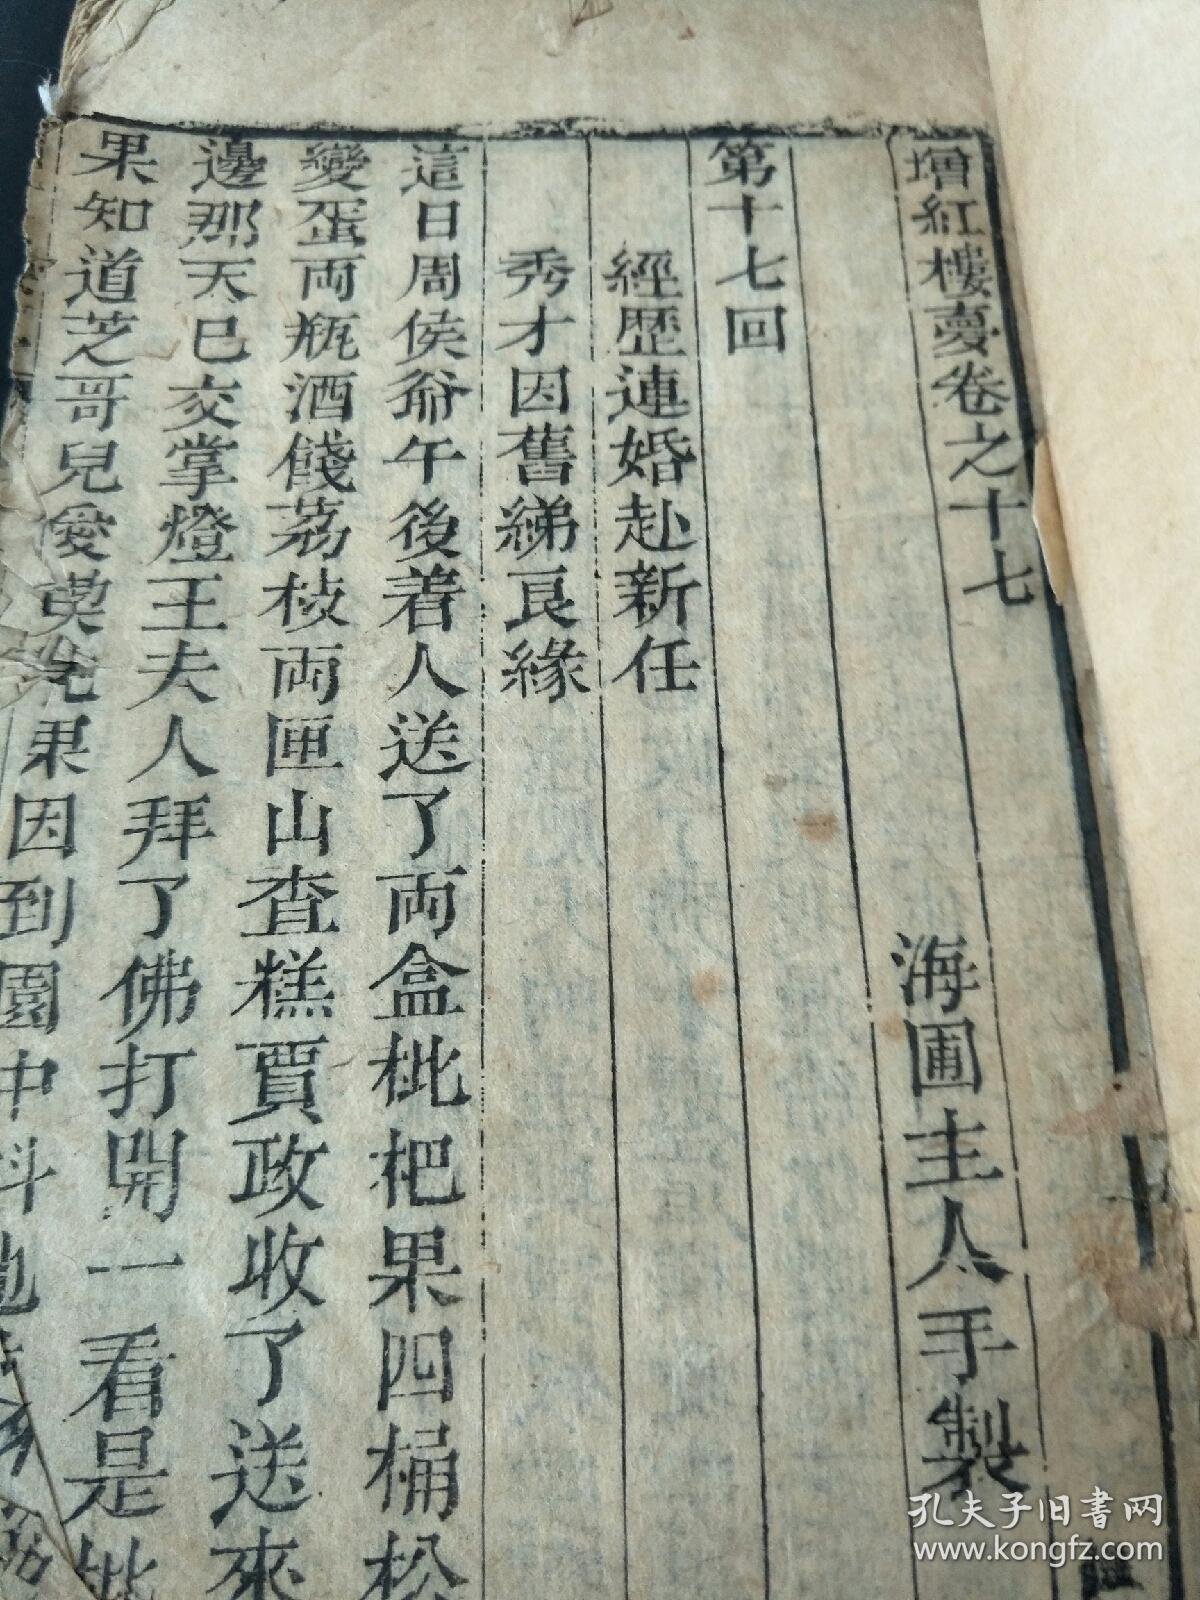 增紅樓夢卷之十七
海圃主人手製
第十七回
經歷連婚赴新任
秀才因舊締良緣
這日周侯爺午後着人送了両盒枇杷果四桶松
變蛋両瓶酒餞荔枝両匣山查糕賈政收了送來
邊那天已交掌燈王夫人拜了佛打開一看是枇
果知道芝哥兒愛
果因到園中
孔夫子旧书网
www.kongfz.com